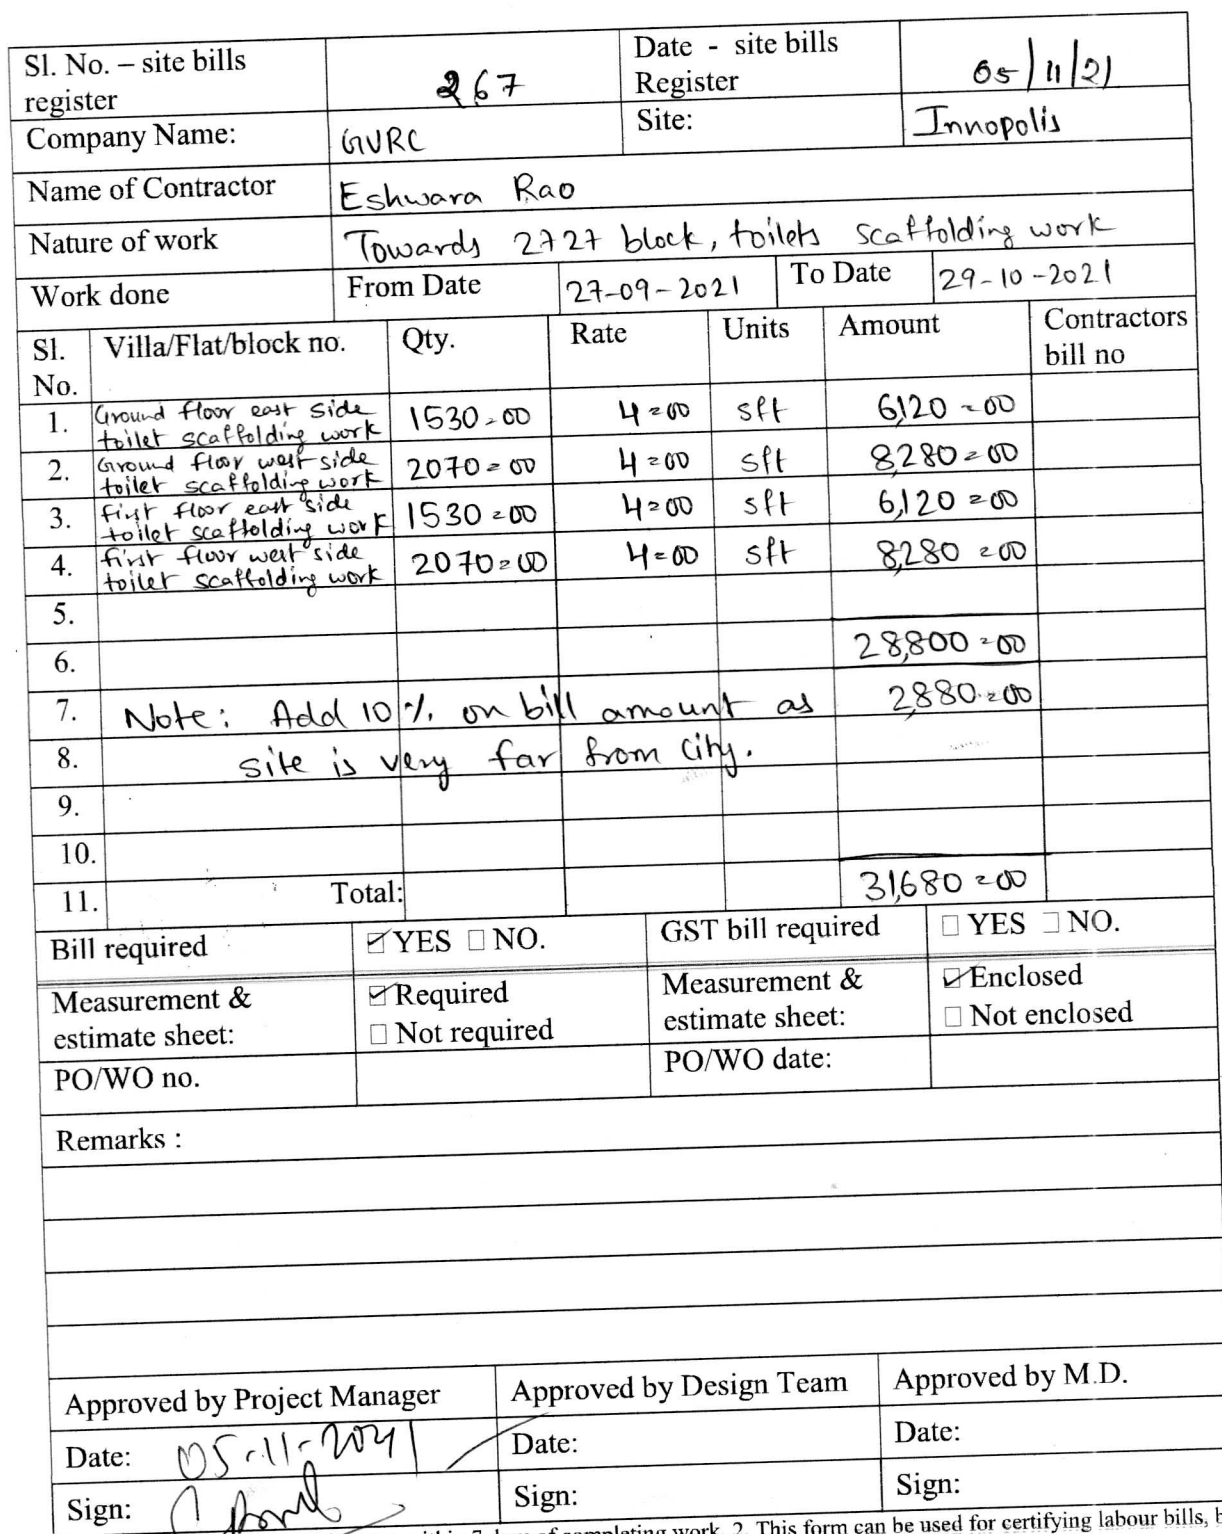 Sl. No. – site bills register 267 Date - site bills Register 05/11/21
Company Name: GVRC Site: Innopolis
Name of Contractor Eshwara Rao
Nature of work Towards 2727 block, toilets scaffolding work
Work done From Date 27-09-2021 To Date 29-10-2021
Sl. No. Villa/Flat/block no. Qty. Rate Units Amount Contractors bill no
1. Ground floor east side toilet scaffolding work 1530=00 4=00 sft 6,120=00
2. Ground floor west side toilet scaffolding work 2070=00 4=00 sft 8,280=00
3. first floor east side toilet scaffolding work 1530=00 4=00 sft 6,120=00
4. first floor west side toilet scaffolding work 2070=00 4=00 sft 8,280=00
5.
6. 28,800=00
7. Note: Add 10% on bill amount as 2,880=00
8. site is very far from city.
9.
10.
11. Total: 31,680=00
Bill required ☑YES ☐NO. GST bill required ☐ YES ☐ NO.
Measurement & estimate sheet: ☑Required ☐ Not required Measurement & estimate sheet: ☑Enclosed ☐ Not enclosed
PO/WO no. PO/WO date:
Remarks :
Approved by Project Manager Approved by Design Team Approved by M.D.
Date: 05-11-2021 Date: Date:
Sign: Sign: Sign:
7 days of completing work. 2. This form can be used for certifying labour bills,